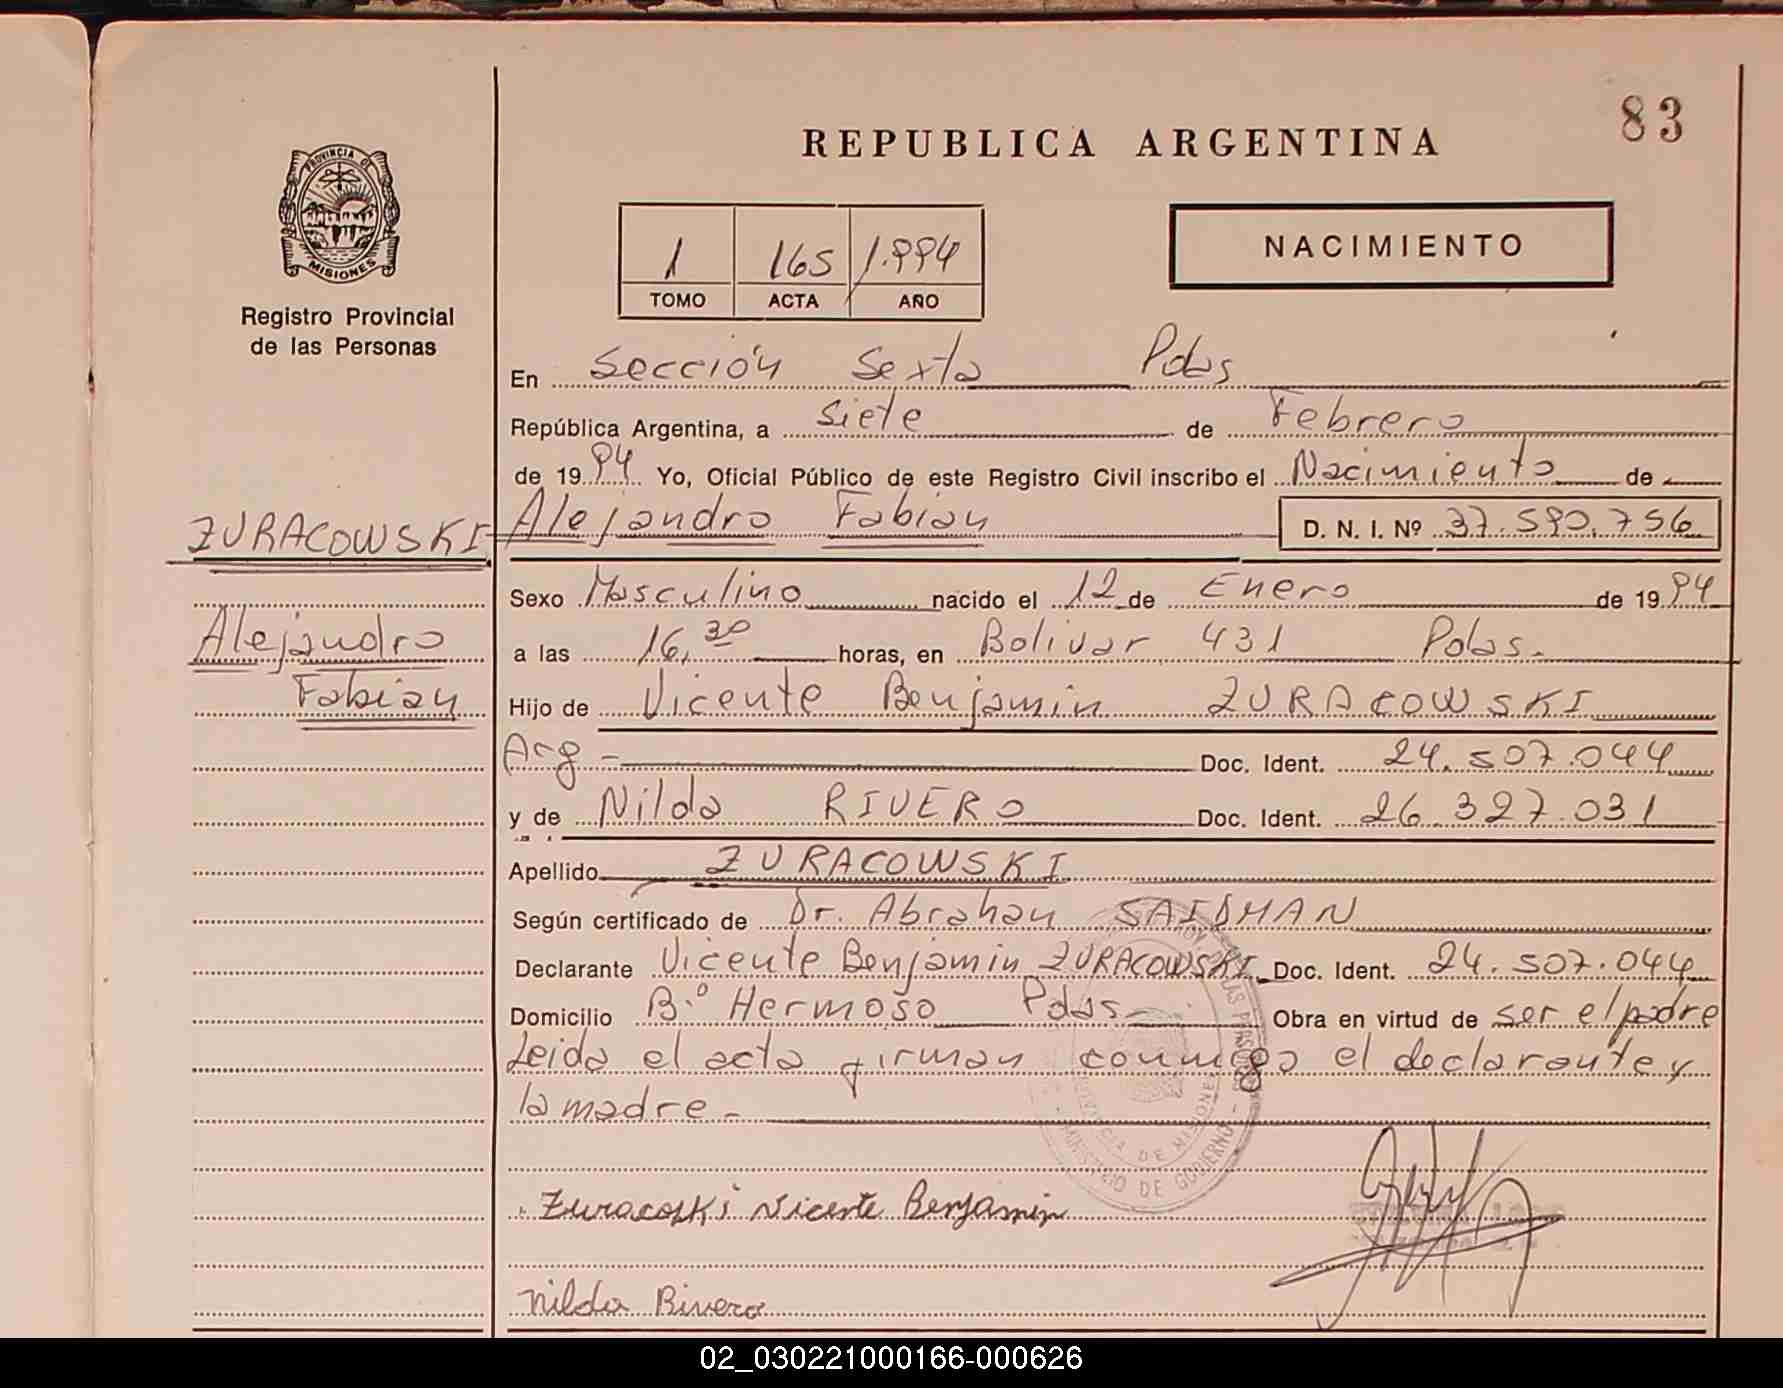 83
REPUBLICA ARGENTINA
PROVINCIA DE
MISIONES
Registro Provincial
de las Personas
1 165 1.994
TOMO ACTA AÑO
NACIMIENTO
En Sección Sexta Pdas
República Argentina, a siete de Febrero
de 1994 Yo, Oficial Público de este Registro Civil inscribo el Nacimiento de
ZURACOWSKI Alejandro Fabian D. N. I. Nº 37.590.756
Sexo Masculino nacido el 12 de Enero de 1994
Alejandro
a las 16,30 horas, en Bolivar 431 Pdas.
Fabian
Hijo de Vicente Benjamin ZURACOWSKI
Arg - Doc. Ident. 24.507.044
y de Nilda RIVERO Doc. Ident. 26.327.031
Apellido ZURACOWSKI
Según certificado de Dr. Abrahan SAIDMAN
Declarante Vicente Benjamin ZURACOWSKI Doc. Ident. 24.507.044
Domicilio B.º Hermoso Pdas - Obra en virtud de ser el padre
Leida el acta firman conmigo el declarante y
la madre -
PROVINCIA DE MISIONES
MINISTERIO DE GOBIERNO
Zuracoski Vicente Benjamin
Nilda Rivero
02_030221000166-000626